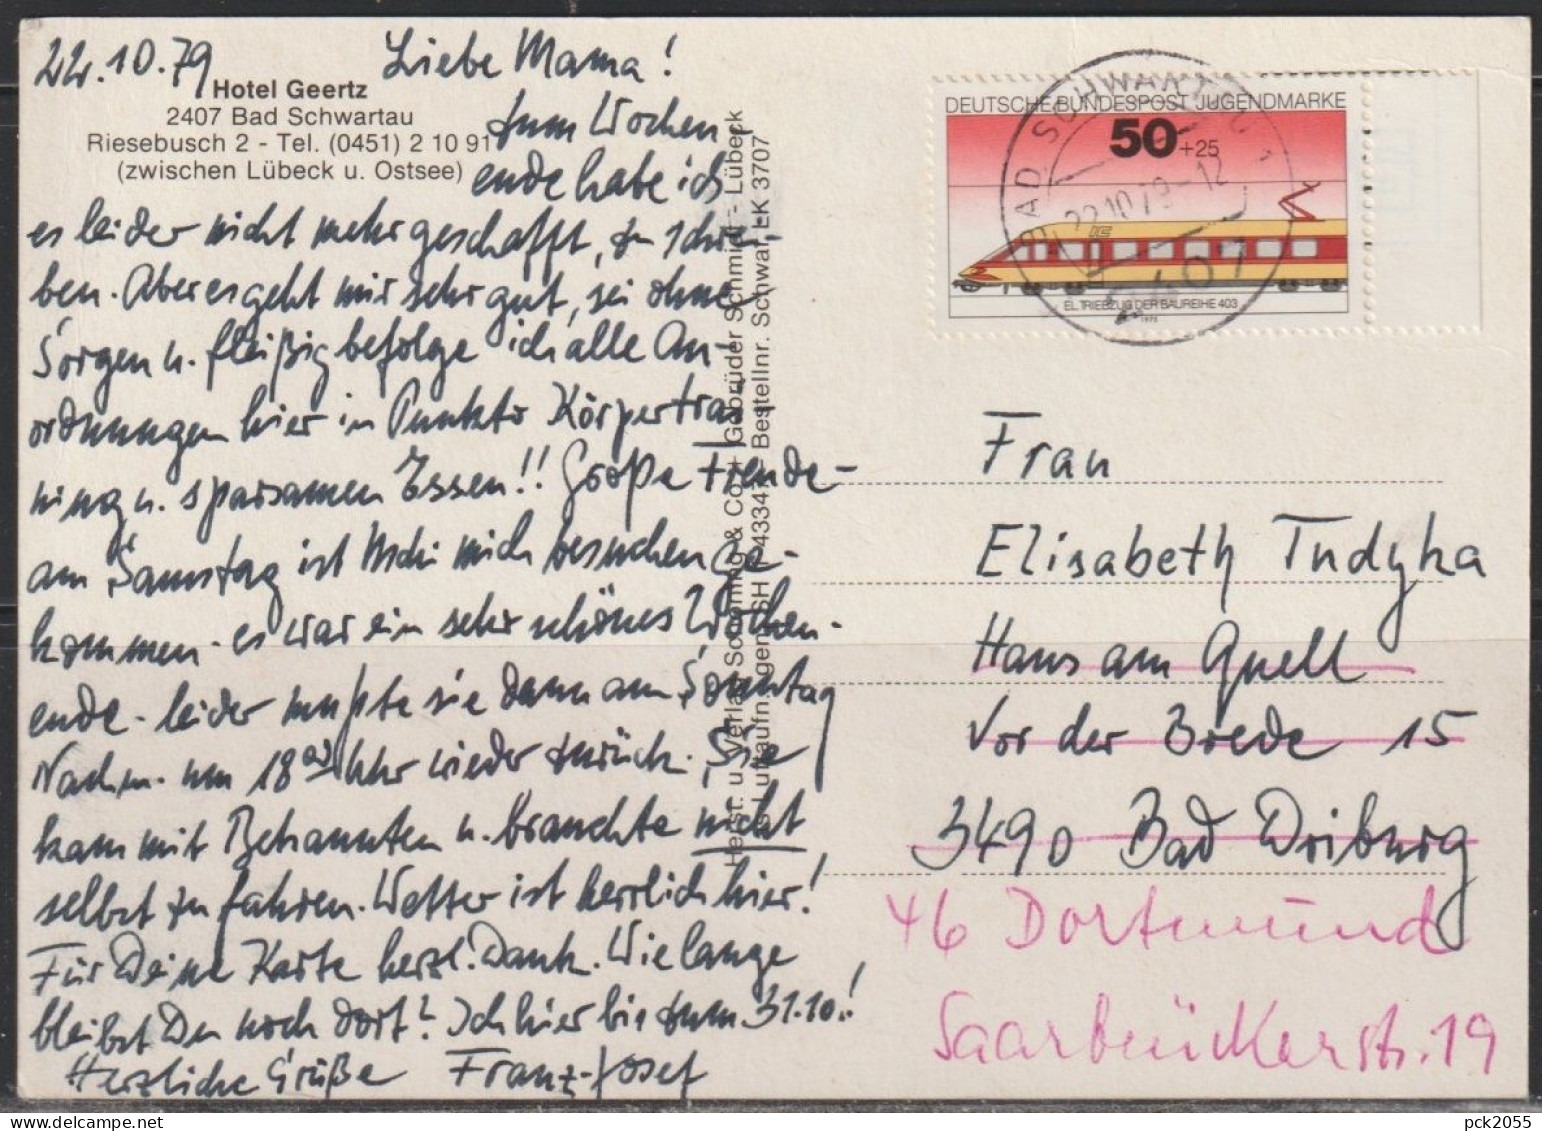 22.10.79 Liebe Mama!
Hotel Geertz
2407 Bad Schwartau
Riesebusch 2 - Tel. (0451) 2 10 91
(zwischen Lübeck u. Ostsee)
zum Wochen-
ende habe ich
es leider nicht mehr geschafft, zu schrei-
ben. Aber es geht mir sehr gut, sei ohne
Sorgen u. fleißig befolge ich alle An-
ordnungen hier in Punkto Körpertrai-
ning u. sparsamen Essen!! Große Freude -
am Samstag ist Uschi mich besuchen ge-
kommen - es war ein sehr schönes Wochen-
ende - leider mußte sie dann am Sonntag
Nachm. um 18 Uhr wieder zurück. Sie
kam mit Bekannten u. brauchte nicht
selbst zu fahren. Wetter ist herrlich hier!
Für Deine Karte herzl. Dank. Wie lange
bleibst Du noch dort? Ich hier bis zum 31.10.!
Herzliche Grüße Franz-Josef
Herst. u. Verlag Schöning & Co + Gebrüder Schmidt - Lübeck
Luftaufn. SH 43347 Bestellnr. Schwar. LK 3707
DEUTSCHE BUNDESPOST JUGENDMARKE
50+25
IC
EL. TRIEBZUG DER BAUREIHE 403
1975
BAD SCHWARTAU
22.10.79-12
2407
Frau
Elisabeth Tudyka
Haus am Quell
Vor der Brede 15
3490 Bad Driburg
46 Dortmund
Saarbrückerstr. 19
pck2055